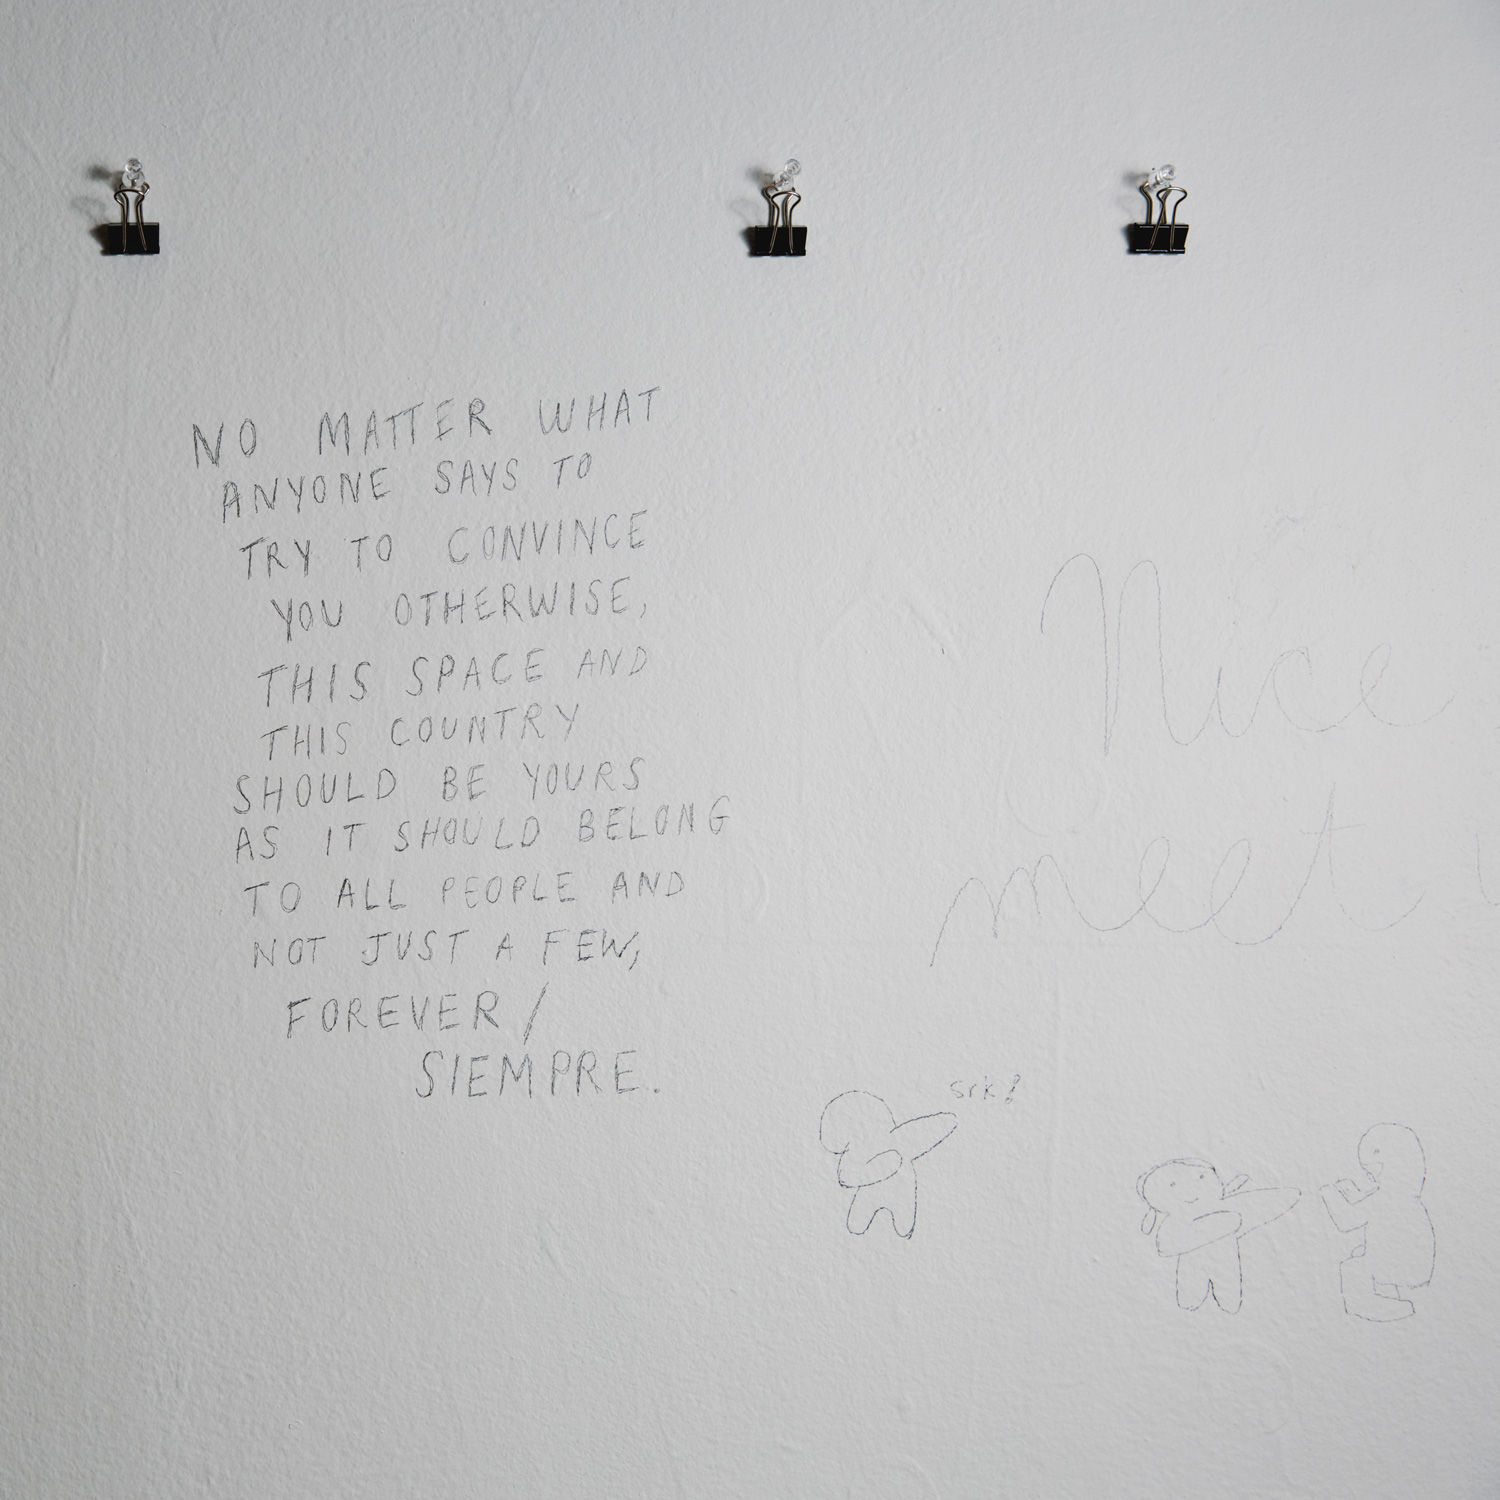 NO MATTER WHAT
ANYONE SAYS TO
TRY TO CONVINCE
YOU OTHERWISE,
THIS SPACE AND
THIS COUNTRY
SHOULD BE YOURS
AS IT SHOULD BELONG
TO ALL PEOPLE AND
NOT JUST A FEW,
FOREVER /
SIEMPRE.
Nice
meet
srk!